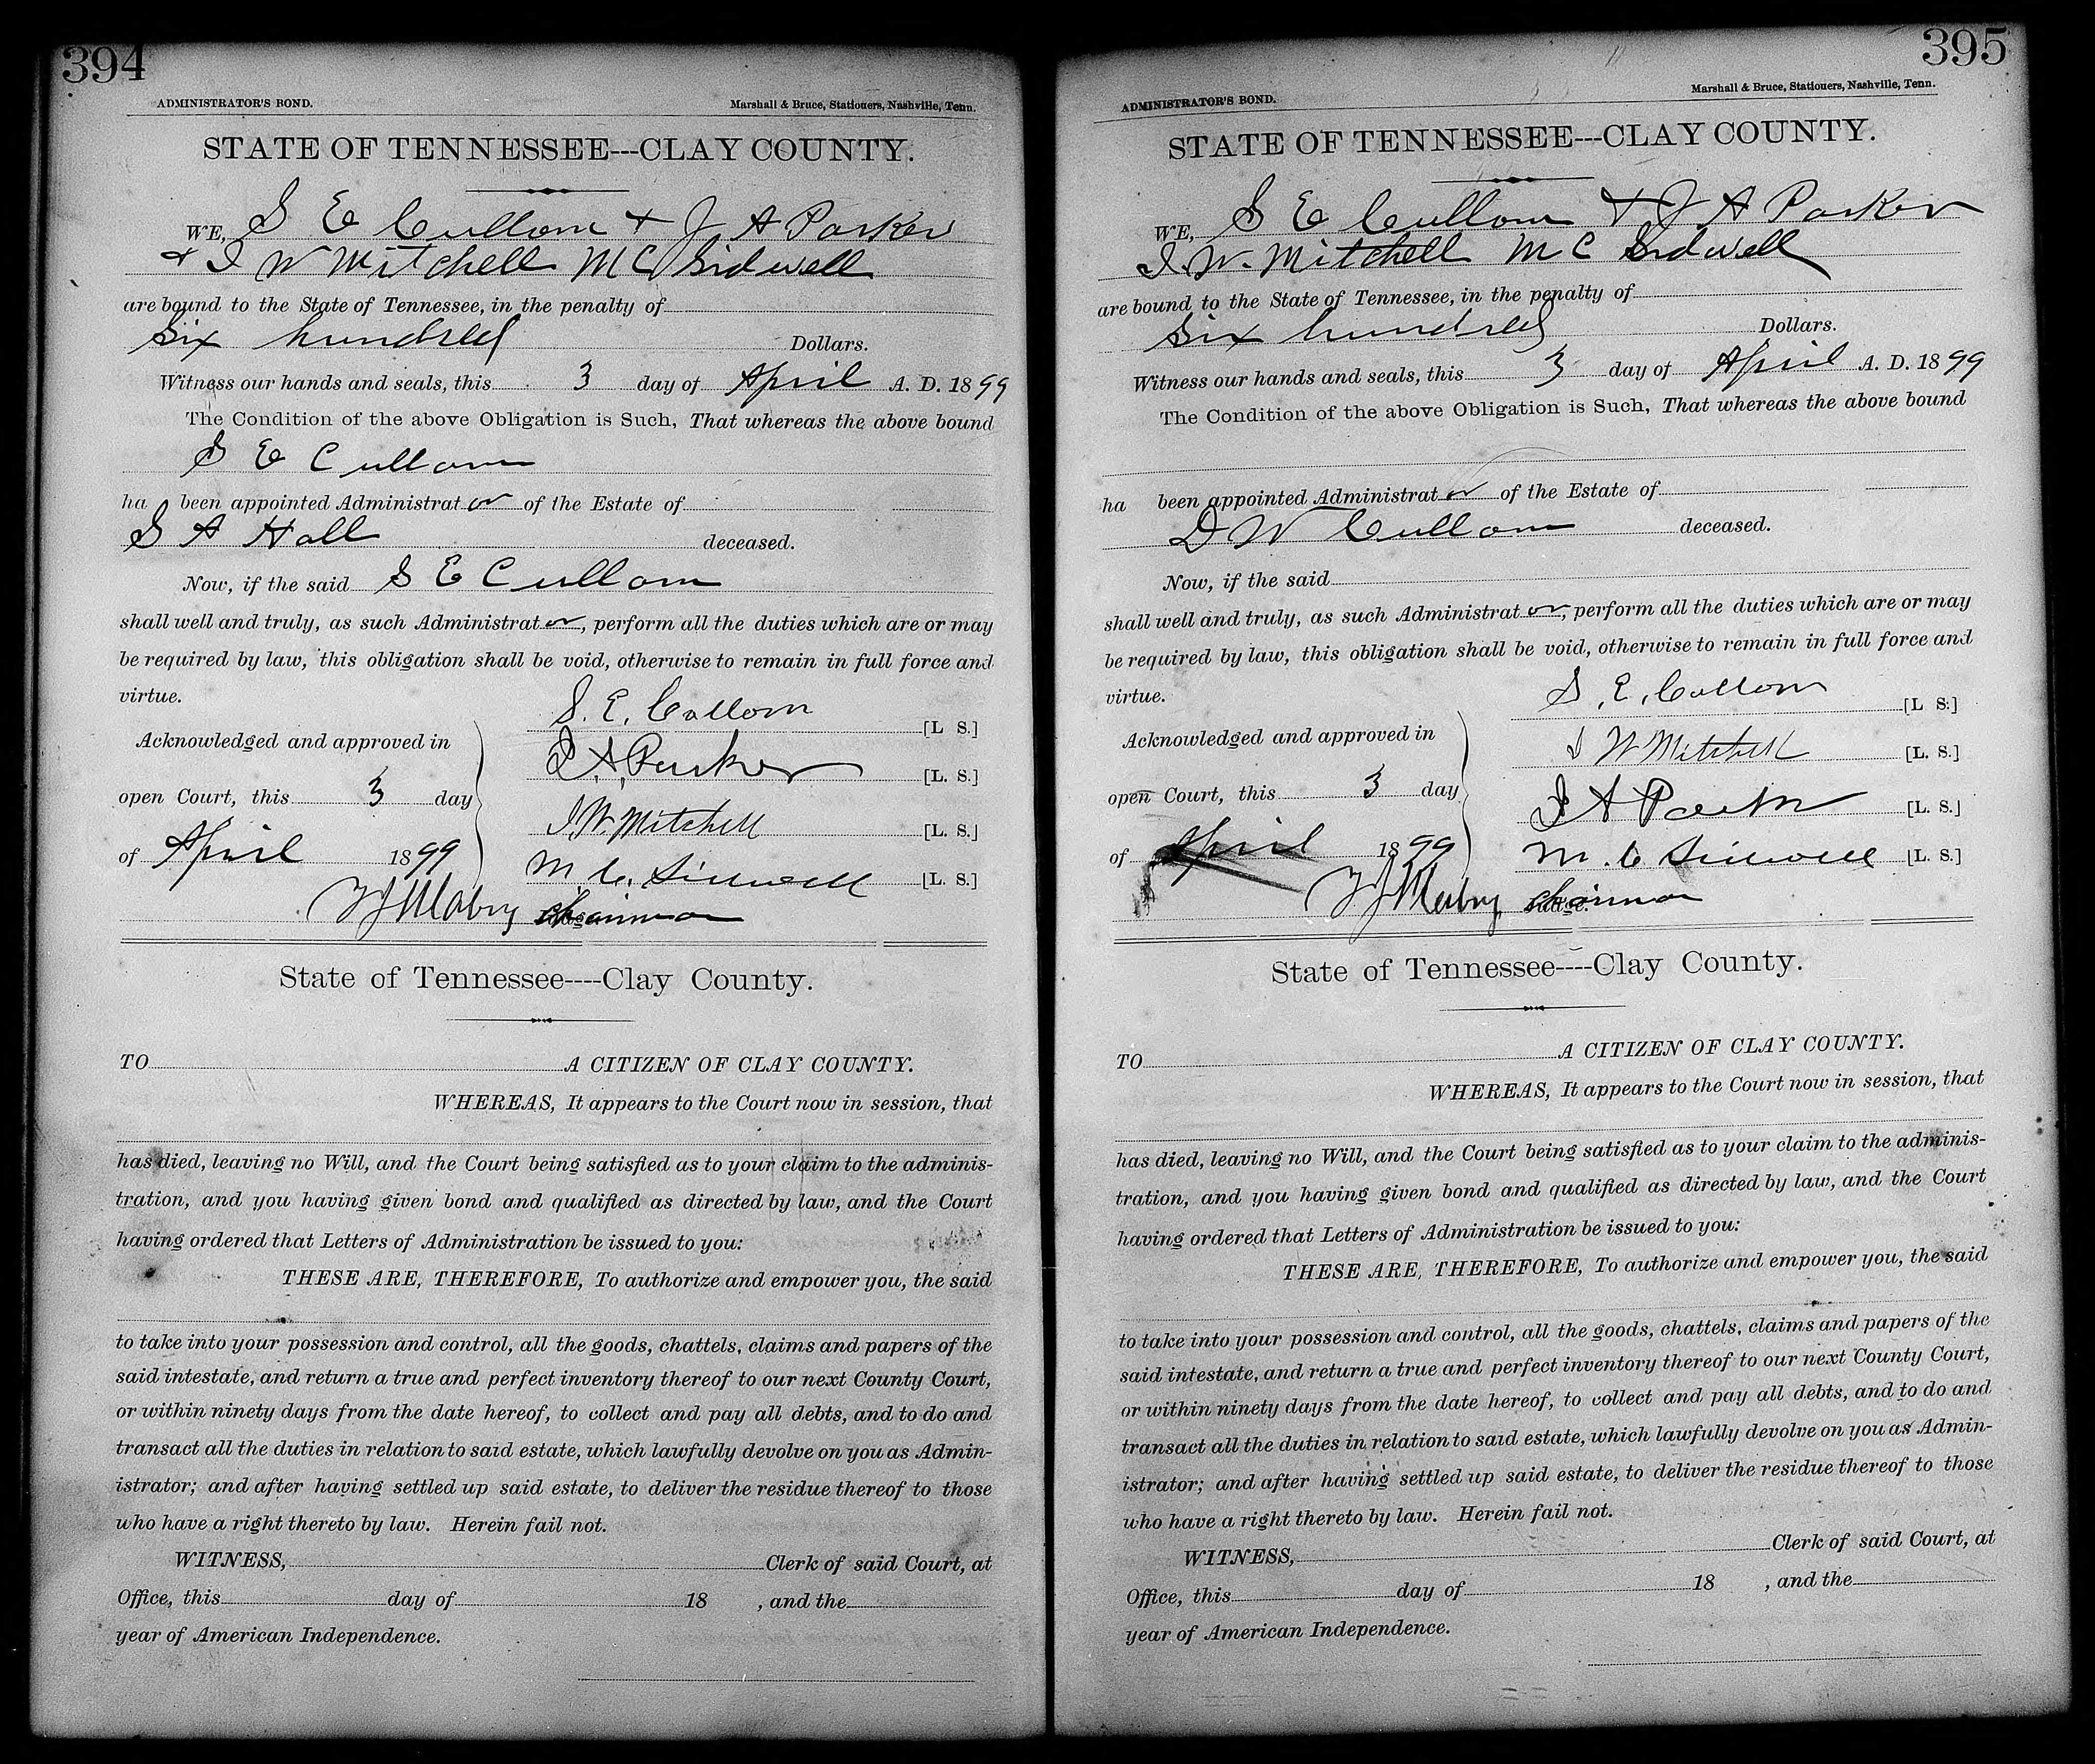 394
ADMINISTRATOR'S BOND. Marshall & Bruce, Stationers, Nashville, Tenn.
STATE OF TENNESSEE---CLAY COUNTY.
WE, S E Cullom + J A Parker
+ J W Mitchell M C Sidwell
are bound to the State of Tennessee, in the penalty of
Six hundred Dollars.
Witness our hands and seals, this 3 day of April A. D. 1899
The Condition of the above Obligation is Such, That whereas the above bound
S E Cullom
ha been appointed Administrator of the Estate of
S A Hall deceased.
Now, if the said S E Cullom
shall well and truly, as such Administrator, perform all the duties which are or may
be required by law, this obligation shall be void, otherwise to remain in full force and
virtue.
S. E. Cullom [L S.]
Acknowledged and approved in
J. A. Parker [L. S.]
open Court, this 3 day
J W Mitchell [L. S.]
of April 1899
M. C. Sidwell [L. S.]
T J Mabry Chairman
State of Tennessee----Clay County.
TO A CITIZEN OF CLAY COUNTY.
WHEREAS, It appears to the Court now in session, that
has died, leaving no Will, and the Court being satisfied as to your claim to the adminis-
tration, and you having given bond and qualified as directed by law, and the Court
having ordered that Letters of Administration be issued to you:
THESE ARE, THEREFORE, To authorize and empower you, the said
to take into your possession and control, all the goods, chattels, claims and papers of the
said intestate, and return a true and perfect inventory thereof to our next County Court,
or within ninety days from the date hereof, to collect and pay all debts, and to do and
transact all the duties in relation to said estate, which lawfully devolve on you as Admin-
istrator; and after having settled up said estate, to deliver the residue thereof to those
who have a right thereto by law. Herein fail not.
WITNESS, Clerk of said Court, at
Office, this day of 18 , and the
year of American Independence.
395
ADMINISTRATOR'S BOND. Marshall & Bruce, Stationers, Nashville, Tenn.
STATE OF TENNESSEE---CLAY COUNTY.
WE, S E Cullom + J A Parker
J. W. Mitchell M C Sidwell
are bound to the State of Tennessee, in the penalty of
Six hundred Dollars.
Witness our hands and seals, this 3 day of April A. D. 1899
The Condition of the above Obligation is Such, That whereas the above bound
ha been appointed Administrator of the Estate of
D W Cullom deceased.
Now, if the said
shall well and truly, as such Administrator, perform all the duties which are or may
be required by law, this obligation shall be void, otherwise to remain in full force and
virtue.
S. E. Cullom [L S.]
Acknowledged and approved in
J W Mitchell [L. S.]
open Court, this 3 day
J A Parker [L. S.]
of April 1899
M. C. Sidwell [L. S.]
T J Mabry Chairman
State of Tennessee----Clay County.
TO A CITIZEN OF CLAY COUNTY.
WHEREAS, It appears to the Court now in session, that
has died, leaving no Will, and the Court being satisfied as to your claim to the adminis-
tration, and you having given bond and qualified as directed by law, and the Court
having ordered that Letters of Administration be issued to you:
THESE ARE, THEREFORE, To authorize and empower you, the said
to take into your possession and control, all the goods, chattels, claims and papers of the
said intestate, and return a true and perfect inventory thereof to our next County Court,
or within ninety days from the date hereof, to collect and pay all debts, and to do and
transact all the duties in relation to said estate, which lawfully devolve on you as Admin-
istrator; and after having settled up said estate, to deliver the residue thereof to those
who have a right thereto by law. Herein fail not.
WITNESS, Clerk of said Court, at
Office, this day of 18 , and the
year of American Independence.